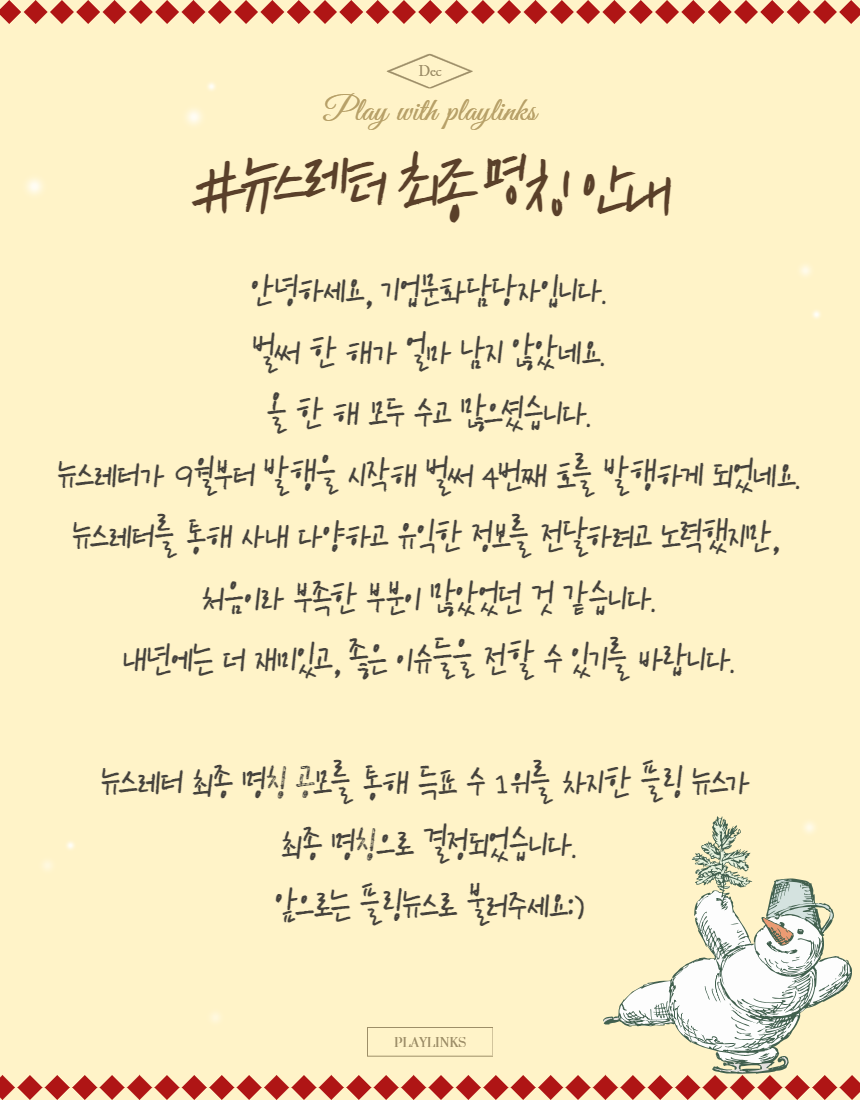 Dec
Play with playlinks
#뉴스레터 최종 명칭 안내
안녕하세요, 기업문화담당자입니다.
벌써 한 해가 얼마 남지 않았네요.
올 한 해 모두 수고 많으셨습니다.
뉴스레터가 9월부터 발행을 시작해 벌써 4번째 호를 발행하게 되었네요.
뉴스레터를 통해 사내 다양하고 유익한 정보를 전달하려고 노력했지만,
처음이라 부족한 부분이 많았었던 것 같습니다.
내년에는 더 재미있고, 좋은 이슈들을 전할 수 있기를 바랍니다.
뉴스레터 최종 명칭 공모를 통해 득표 수 1위를 차지한 플링 뉴스가
최종 명칭으로 결정되었습니다.
앞으로는 플링뉴스로 불러주세요:)
PLAYLINKS